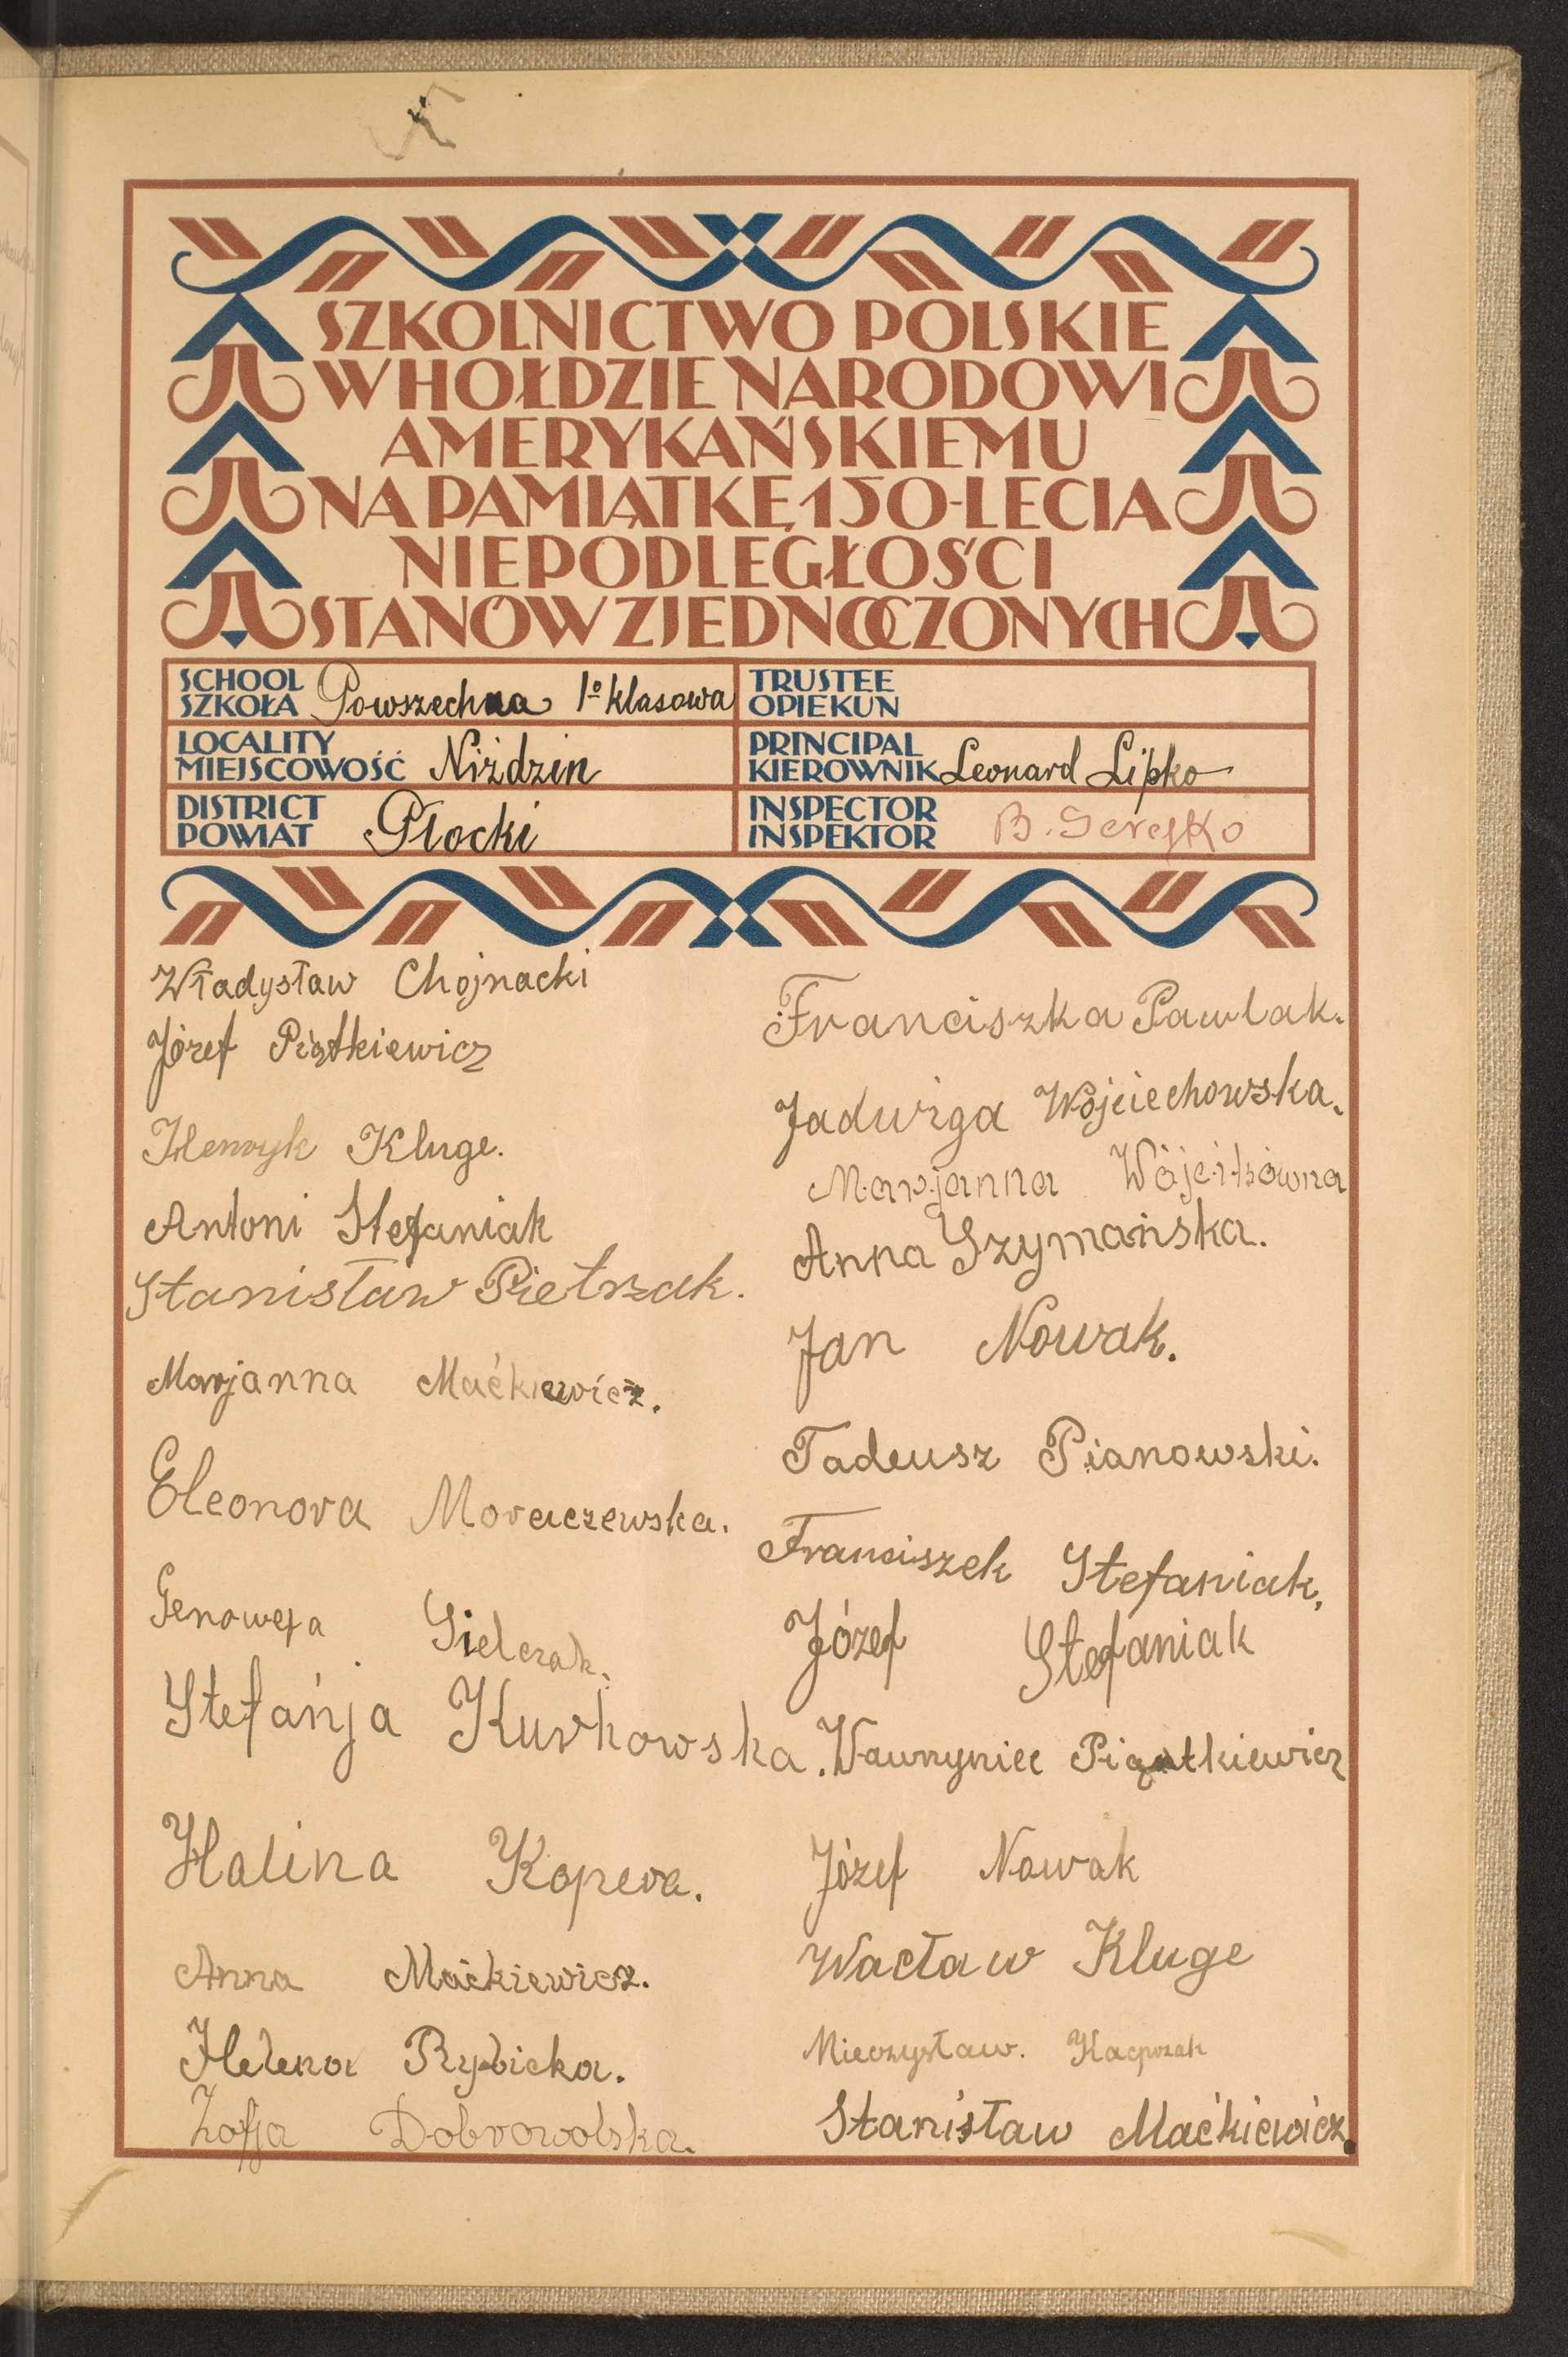 SZKOLNICTWO POLSKIE
W HOŁDZIE NARODOWI
AMERYKAŃSKIEMU
NA PAMIĄTKĘ 150-LECIA
NIEPODLEGŁOŚCI
STANÓW ZJEDNOCZONYCH
SCHOOL
SZKOŁA Powszechna 1º klasowa
TRUSTEE
OPIEKUN
LOCALITY
MIEJSCOWOŚĆ Niżdzin
PRINCIPAL
KIEROWNIK Leonard Lipko
DISTRICT
POWIAT Płocki
INSPECTOR
INSPEKTOR B.
Władysław Chojnacki
Józef Piątkiewicz
Henryk Kluge.
Antoni Stefaniak
Stanisław Pietrzak.
Marjanna Maćkiewicz.
Eleonora Moraczewska.
Genowefa Sielczak.
Stefańja Kurkowska.
Halina Kopera.
Anna Maćkiewicz.
Helena Rybicka.
Zofja Dobrowolska.
Franciszka Pawlak.
Jadwiga Wojciechowska.
Marjanna Wójcikówna
Anna Szymańska.
Jan Nowak.
Tadeusz Pianowski.
Franciszek Stefaniak.
Józef Stefaniak
Wawrzyniec Piątkiewicz
Józef Nowak
Wacław Kluge
Mieczysław. Kacprzak
Stanisław Maćkiewicz.